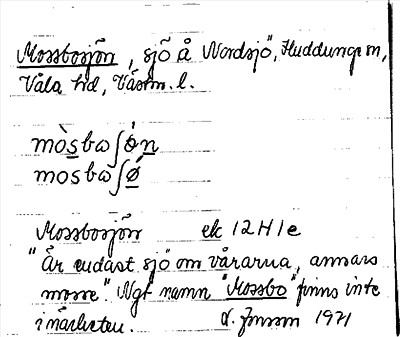 Mossbosjön, sjö å "Nordsjö", Huddunge sn,
Våla hd, Västm. l.
mòsbωʃø̀n
mosbωʃǿ
Mossbosjön ek 12H1e
"Är endast sjö om vårarna, annars
mosse". Ngt namn "Mossbo" finns inte
i närheten. 1971